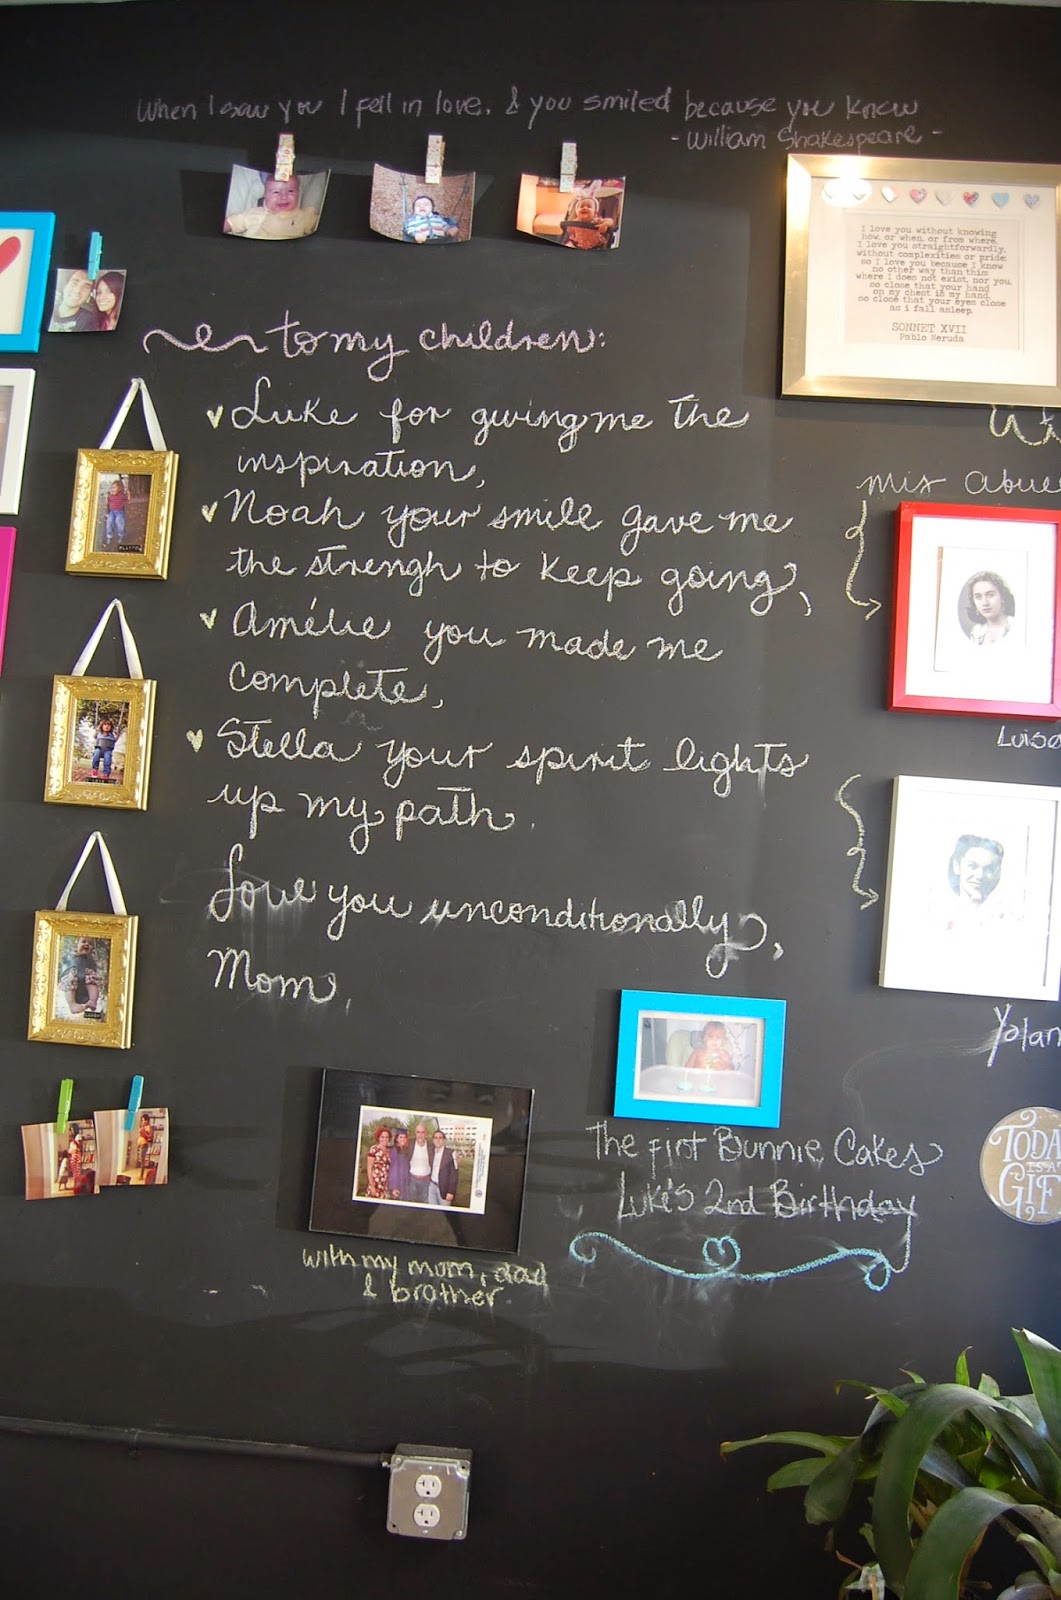 When I saw you I fell in love, & you smiled because you knew
- William Shakespeare -
I love you without knowing
how, or when, or from where,
I love you straightforwardly,
without complexities or pride;
so I love you because I know
no other way than this
where I does not exist, nor you,
so close that your hand
on my chest is my hand,
so close that your eyes close
as i fall asleep.
SONNET XVII
Pablo Neruda
to my children:
Luke for giving me the
inspiration,
Noah your smile gave me
the strengh to keep going,
Amélie you made me
complete,
Stella your spirit lights
up my path.
Love you unconditionally,
Mom.
mis abue
Luisa
Yolan
TODA
IS A
GIF
The first Bunnie Cakes
Luke's 2nd Birthday
with my mom, dad
& brother.